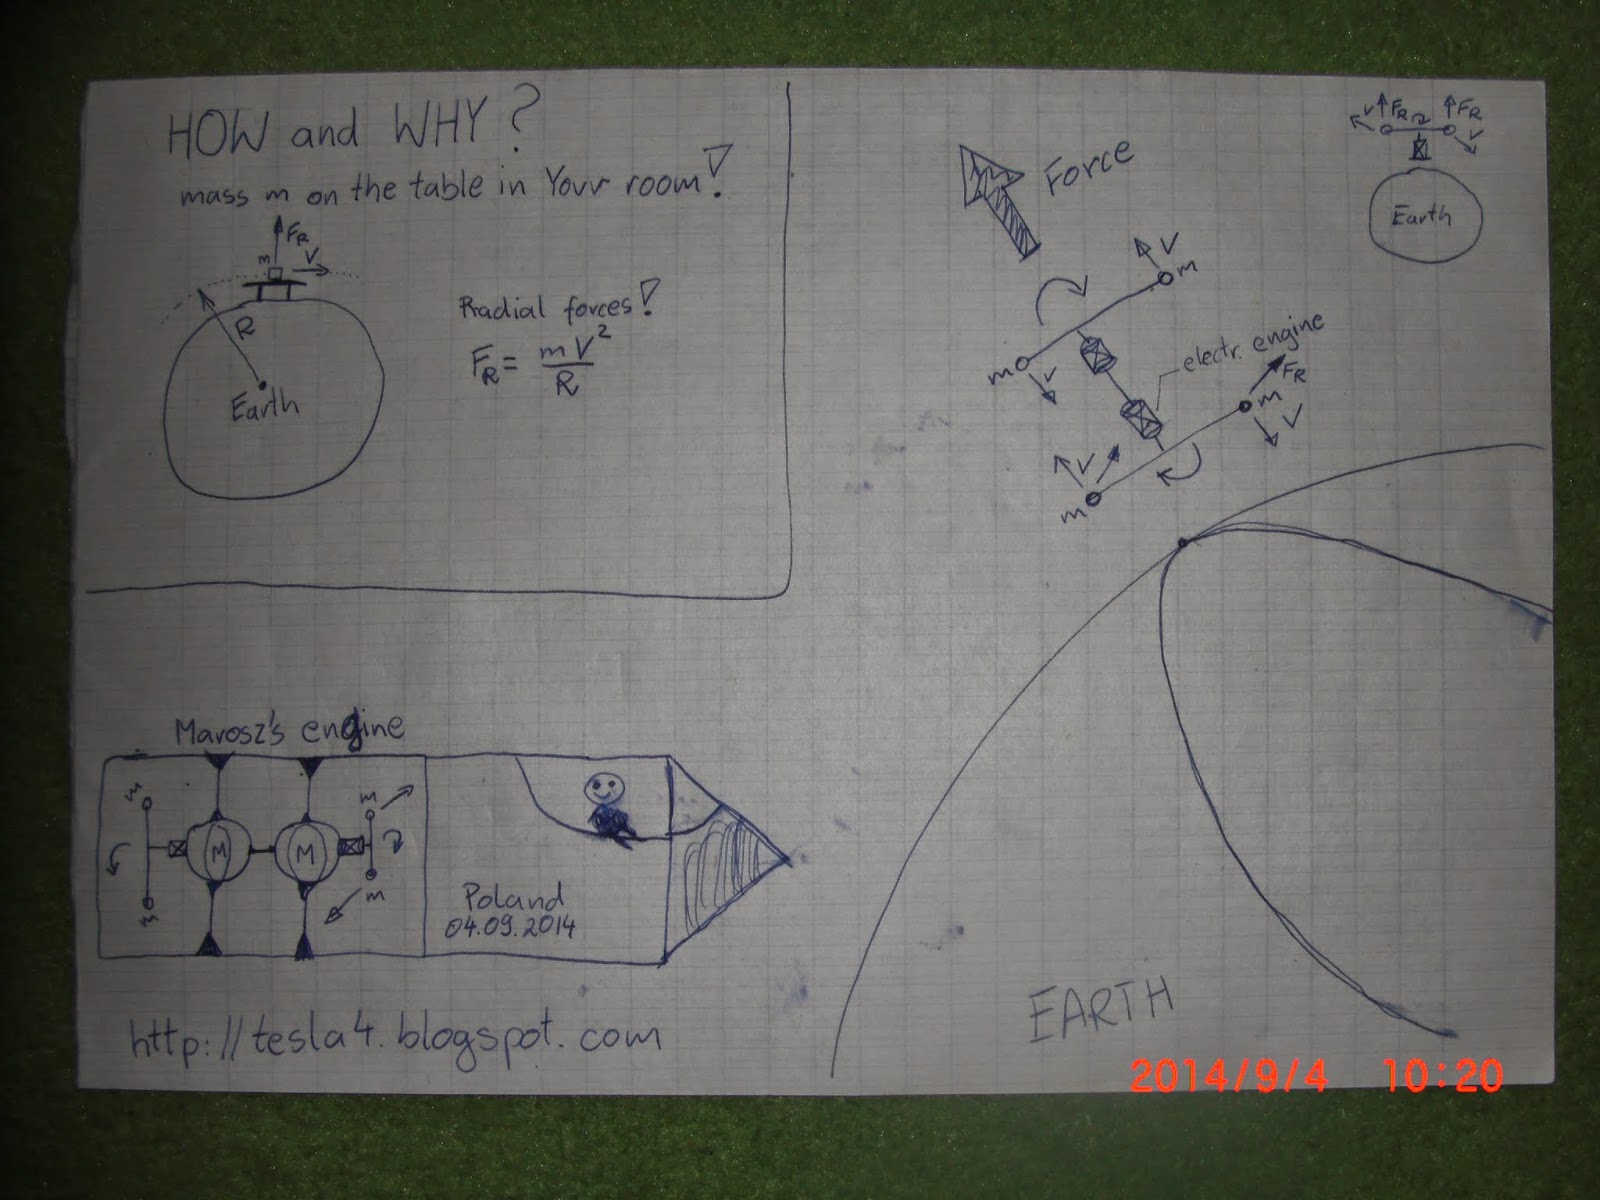 HOW and WHY?
mass m on the table in Your room!
FR
m
V
R
Earth
Radial forces!
FR = mV²/R
Force
V FR FR
V
Earth
V
m
m
V
electr. engine
FR
m
V
V
m
Marosz's engine
m
m
M
M
m
m
Poland
04.09.2014
http://tesla4.blogspot.com
EARTH
2014/9/4 10:20